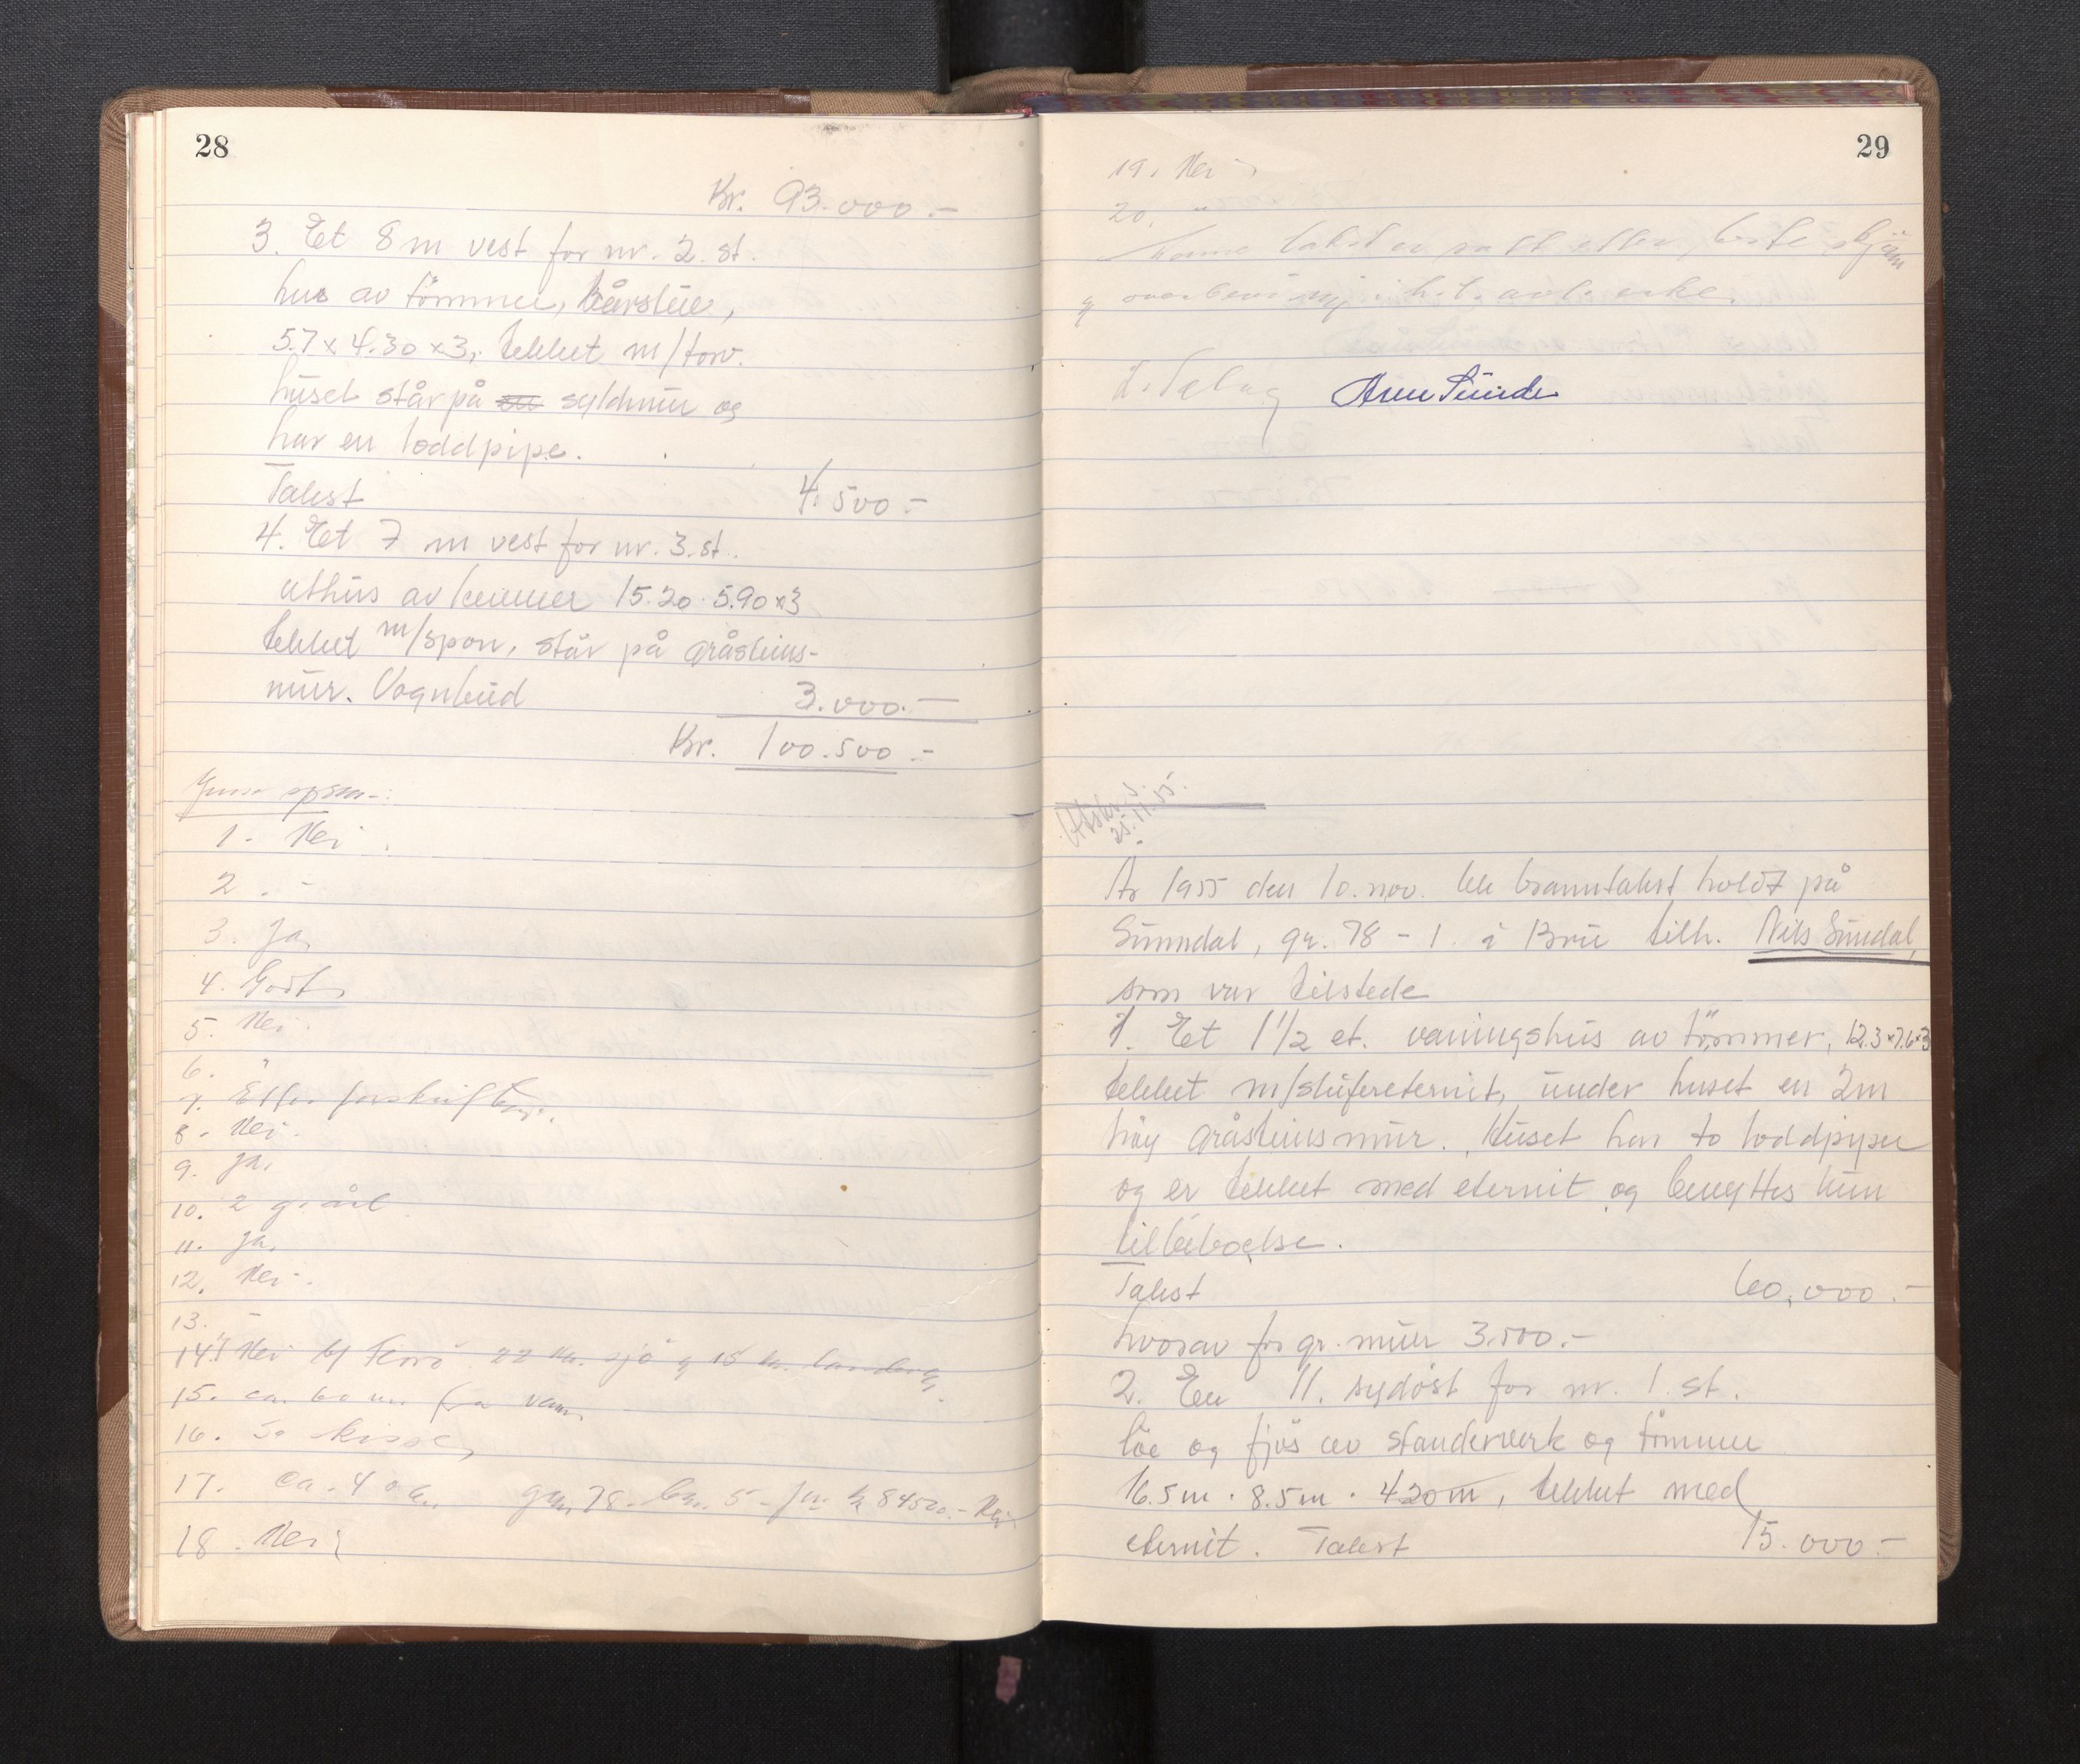 28
Kr. 93.000.-
3. Et 8 m vest for nr. 2. st.
hus av tömmer, kårstue,
5.7 x 4.30 x 3, tekket m/torv.
huset står på syldmur og
har en loddpipe.
Takst 4.500.-
4. Et 7 m vest for nr. 3. st.
uthus av tømmer 15.20 · 5.90 x 3
tekket m/spon, står på gråsteins-
mur. Vognbud 3.000.-
Kr. 100.500.-
1. Nei
2. -
3. Ja
4. Godt
5. Nei.
6. "
7. Efter forskrifter.
8. Nei.
9. Ja.
10. 2 g. årl
11. Ja.
12. Nei.
13. -
14. Nei Florö 22 km. sjö og 15 km. landveg.
15. ca. 60 m. fra vann
16. Se kisse
17. ca. 40 gnr. 78 bnr. 5 - for kr 84500.- Nei
18. Nei
29
19. Nei
20. "
Denne takst er satt etter beste skjönn
og overbevisning
Arne Sunde
Avskr. s.
25.11.55.
År 1955 den 10. nov. ble branntakst holdt på
Sunndal, gr. 78 - 1. i Bru tilh. Nils Sundal,
som var tilstede
1. Et 1 1/2 et. vaningshus av tömmer, 12.3 x 7.6 x 3
tekket m/skifereternit, under huset en 2m
høy gråsteinsmur. Huset har to loddpyper
og er tekket med eternit og benyttes kun
til beboelse.
Takst 60.000.-
hvorav for gr. mur 3.500.-
2. En 11. sydöst for nr. 1. st.
löe og fjös av standerverk og tömmer
16.5 m · 8.5 m · 4.20 m, tekket med
eternit. Takst 15.000.-